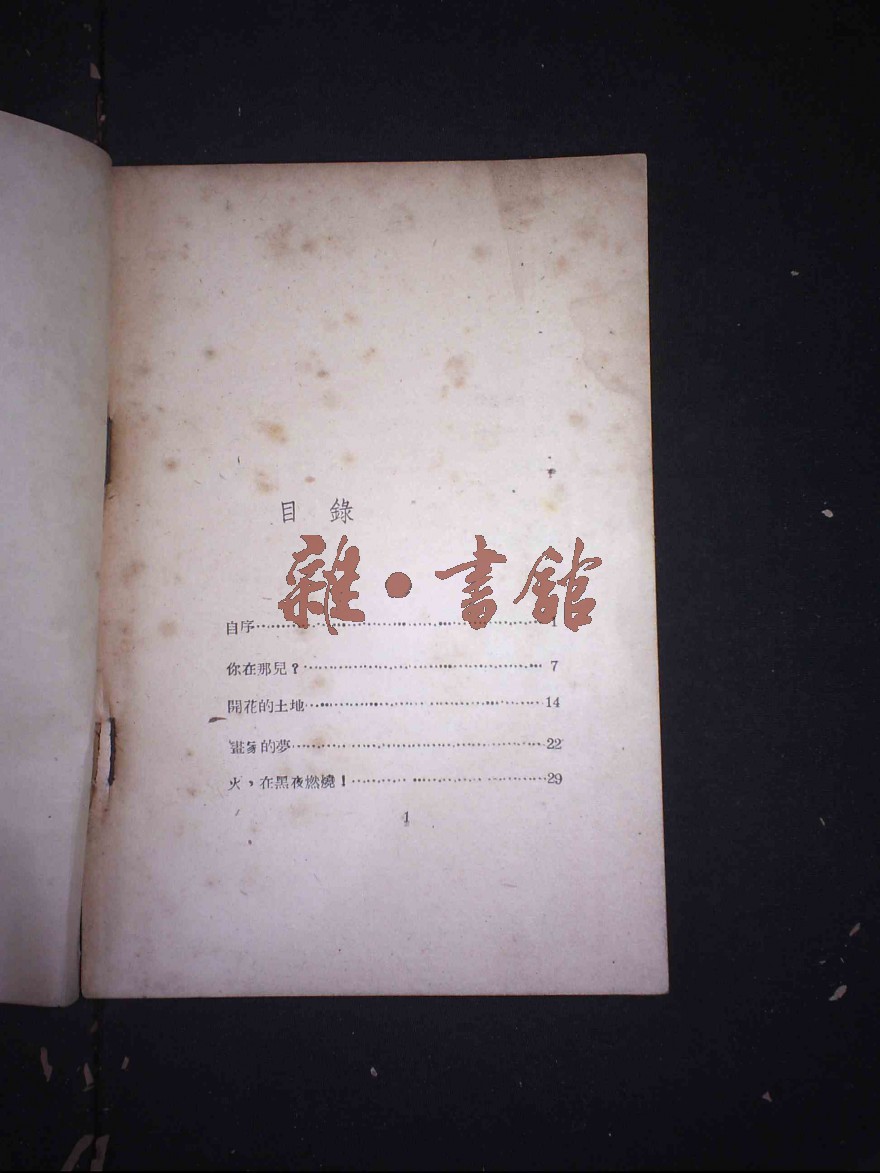 目 錄
雜·書館
自序………………………………1
你在那兒？………………………………7
開花的土地………………………………14
畫家的夢………………………………22
火，在黑夜燃燒！………………………………29
1